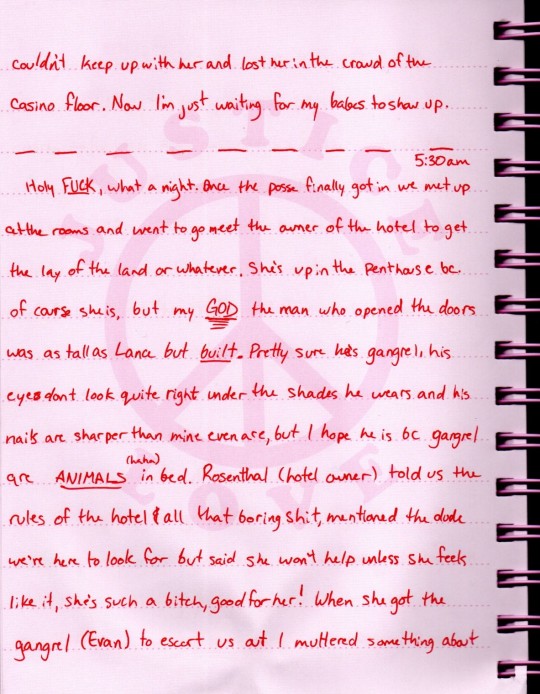 couldn't keep up with her and lost her in the crowd of the
casino floor. Now I'm just waiting for my babes to show up.
5:30am
Holy FUCK, what a night. Once the posse finally got in we met up
at the rooms and went to go meet the owner of the hotel to get
the lay of the land or whatever. She's up in the penthouse bc
of course she is, but my GOD the man who opened the doors
was as tall as Lance but built. Pretty sure he's gangrel, his
eyes dont look quite right under the shades he wears and his
nails are sharper than mine even are, but I hope he is bc gangrel
are ANIMALS (haha) in bed. Rosenthal (hotel owner) told us the
rules of the hotel & all that boring shit, mentioned the dude
we're here to look for but said she won't help unless she feels
like it, she's such a bitch, good for her! When she got the
gangrel (Evan) to escort us out I muttered something about
JUSTICE
LOVE